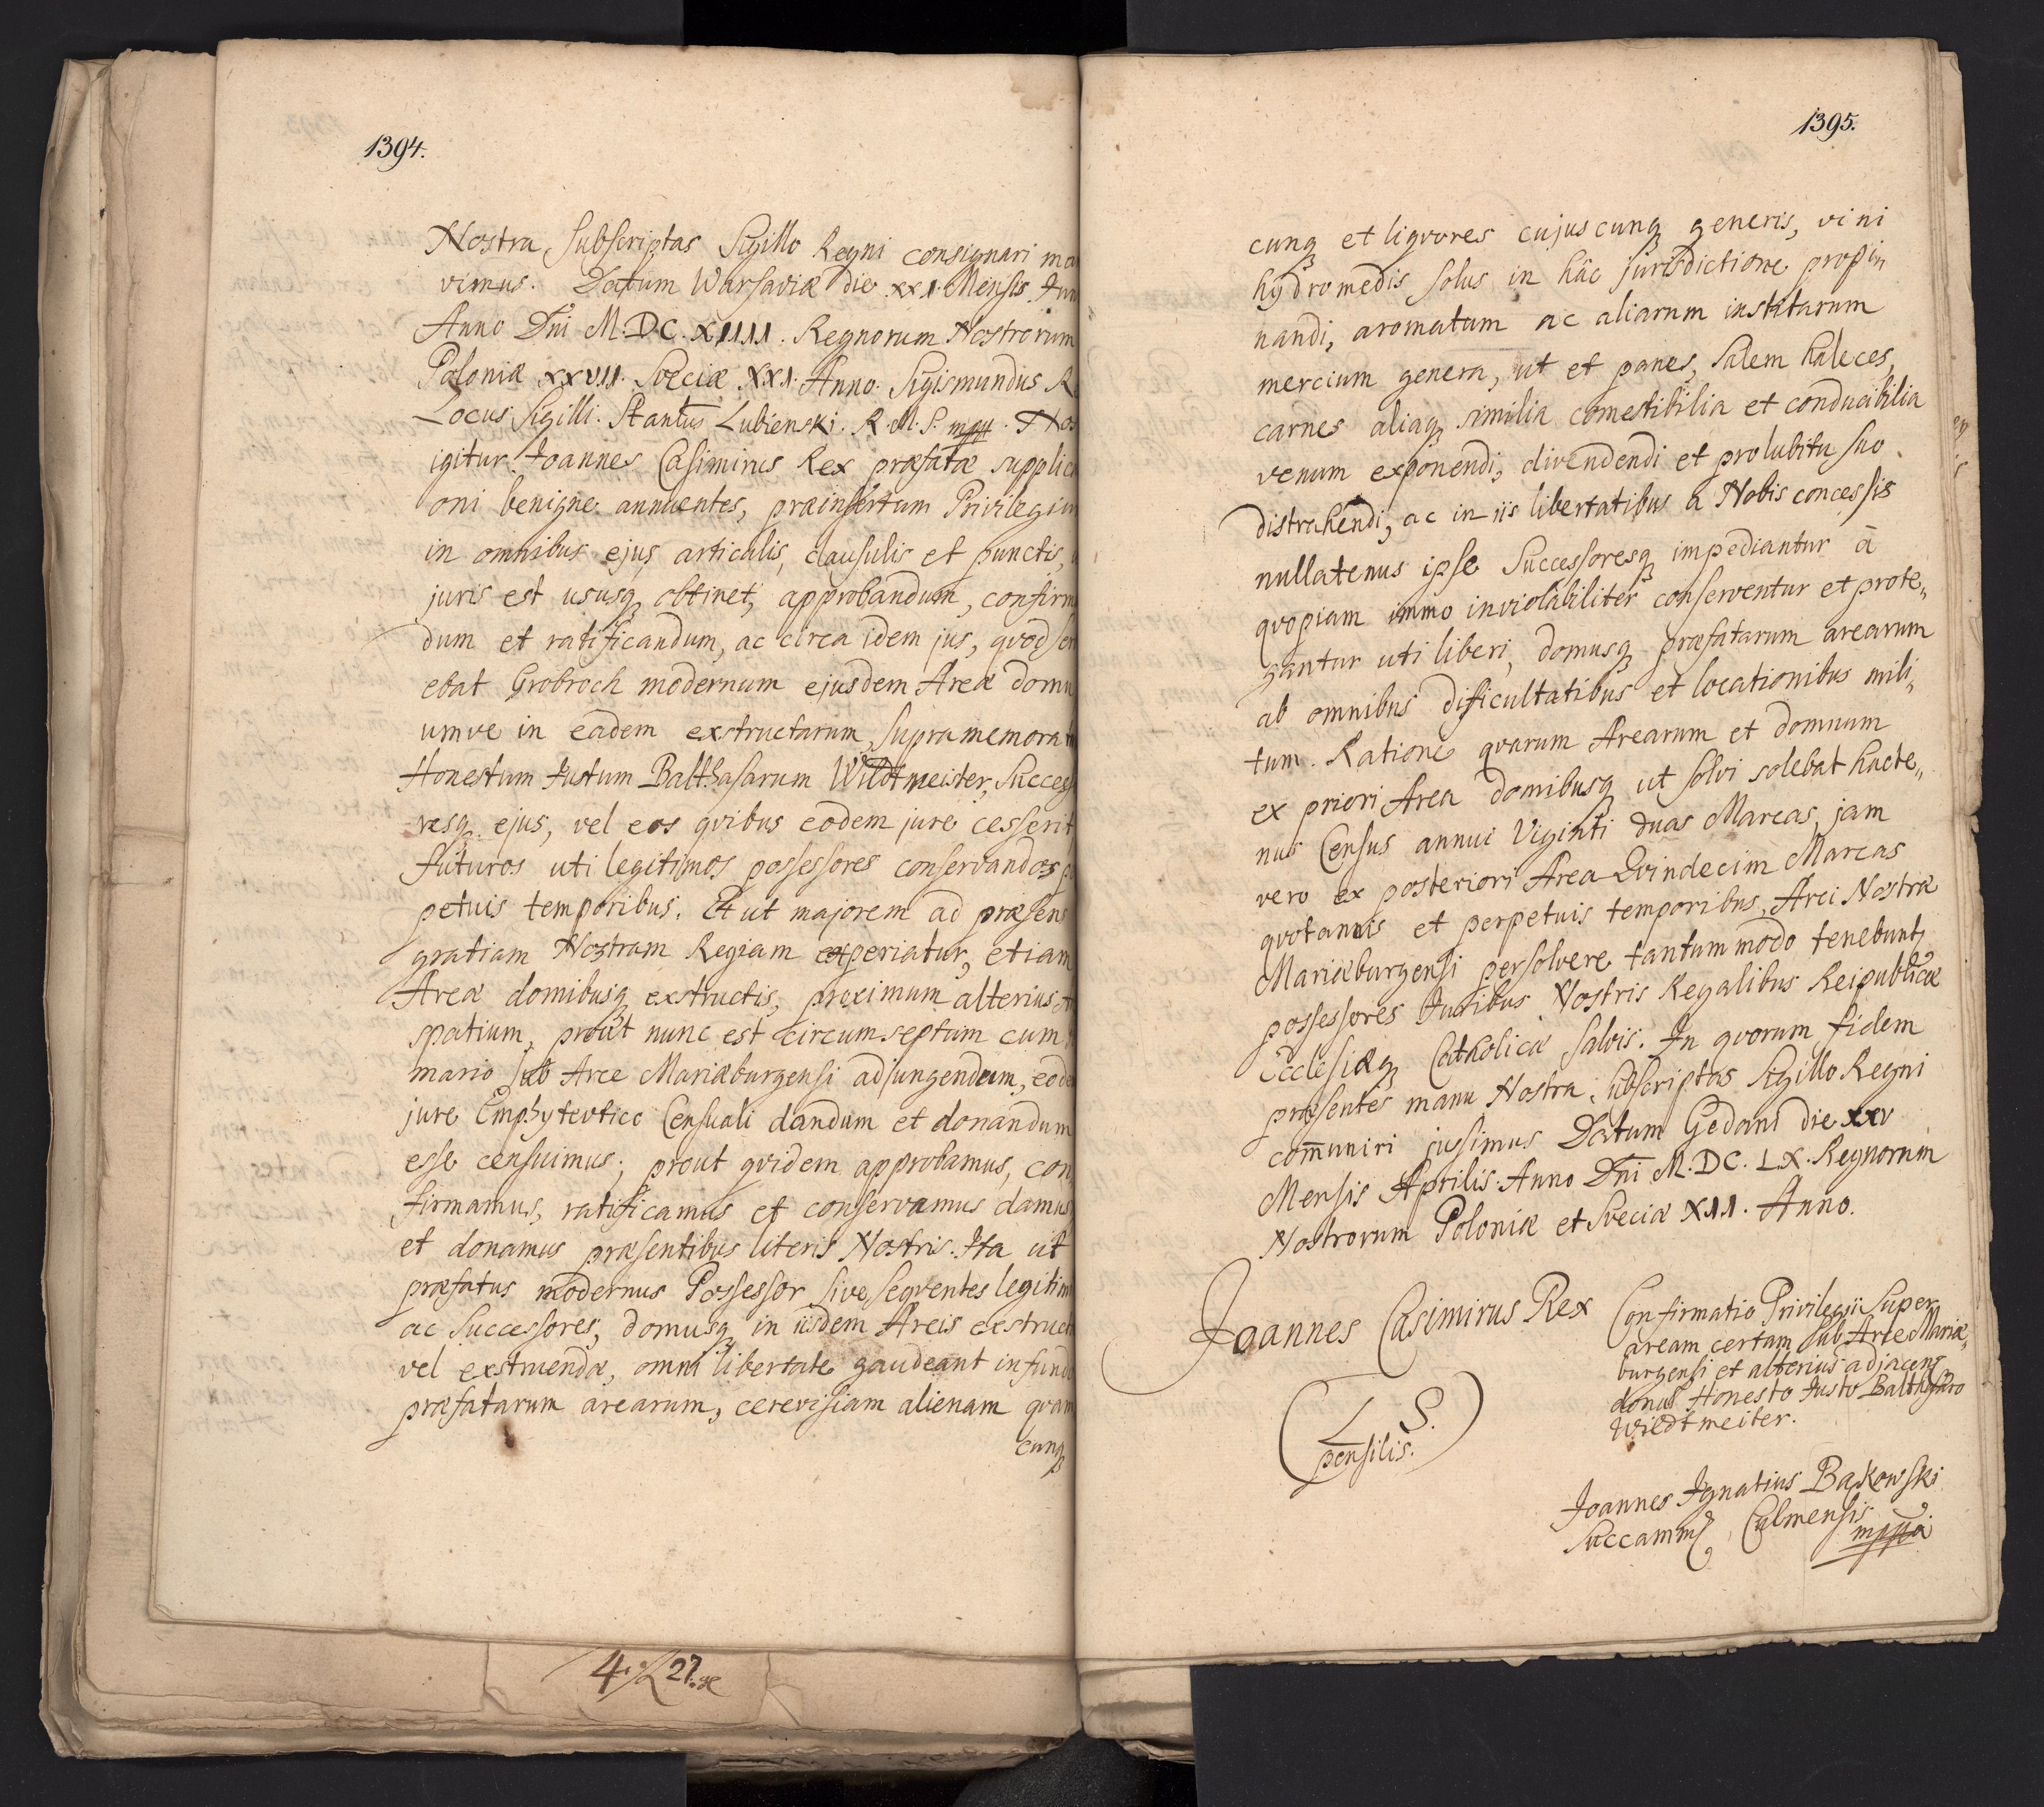 1394.
Nostra Subscriptas Sigillo Regni consignari ma
vimus. Datum Warsaviæ die XXI. Mensis Jun
Anno Dni M.DC.XIIII. Regnorum Nostrorum
Poloniæ XXVII. Sveciæ XXI. Anno. Sigismundus R
Locus Sigilli. Stanlus Lubienski. R.M.S. mpp. Nos
igitur Joannes Casimirus Rex præfatæ supplica
oni benigne annuentes, præinsertum Privilegium
in omnibus ejus articulis, clausulis et punctis,
juris est ususq obtinet, approbandum, confirma
dum et ratificandum, ac circa idem jus, qvod ser
ebat Grobroch modernum ejusdem Areæ domu
umve in eadem exstructarum, supra memoratu
Honestum Justum Balthasarum Wildtmeister, Success
resq ejus, vel eos qvibus eodem jure cesserit
futuros uti legitimos possessores conservandos p
petuis temporibus. Et ut majorem ad præsens
gratiam Nostram Regiam experiatur, etiam
Areæ domibusq exstructis, proximum alterius
spatium, prout nunc est circumseptum cum
mario sub Arce Mariæburgensi adjungendum, eode
jure Emphyteutico Censuali dandum et donandum
esse censuimus; prout qvidem approbamus, con
firmamus, ratificamus et conservamus damus
et donamus præsentibus literis Nostris. Ita ut
præfatus modernus Possessor sive seqventes legitimi
ac Successores, domusq in iisdem Areis exstructæ
vel exstruendæ, omni libertate gaudeant in fundo
præfatarum arearum, cerevisiam alienam qvam
cunq
4. 27.
1395.
cunq et liqvores cujuscunq generis, vini
hydromedis solus in hâc jurisdictione propin
nandi, aromatum ac aliarum institarum
mercium genera, ut et panes, salem haleces,
carnes aliaq similia comestibilia et conducibilia
venum exponendi, divendendi et pro lubitu suo
distrahendi, ac in iis libertatibus a Nobis concessis
nullatenus ipse Successoresq impediantur à
qvopiam immo inviolabiliter conserventur et prote„
gantur uti liberi, domusq præfatarum arearum
ab omnibus dificultatibus et locationibus mili„
tum. Ratione qvarum Arearum et domuum
ex priori Area domibusq ut solvi solebat hacte„
nus Census annui Viginti duas Marcas, jam
vero ex posteriori Area Qvindecim Marcas
qvotannis et perpetuis temporibus, Arci Nostræ
Mariæburgensi persolvere tantummodo tenebunt
possessores Juribus Nostris Regalibus Reipublicæ
Ecclesiæq Catholicæ salvis. In qvorum fidem
præsentes manu Nostra subscriptas Sigillo Regni
com̄uniri jussimus. Datum Gedani die XXV
Mensis Aprilis Anno Dni M.DC.LX. Regnorum
Nostrorum Poloniæ et Sveciæ XII. Anno.
Joannes Casimirus Rex
(L. S.
pensilis.)
Confirmatio Privilegii Super
aream certam sub Arce Mariæ„
burgensi et alterius adjacens
donus Honesto Justo Balthasaro
Wiedtmeiter.
Joannes Ignatius Bąkowski
Succamms Culmensis
mppa